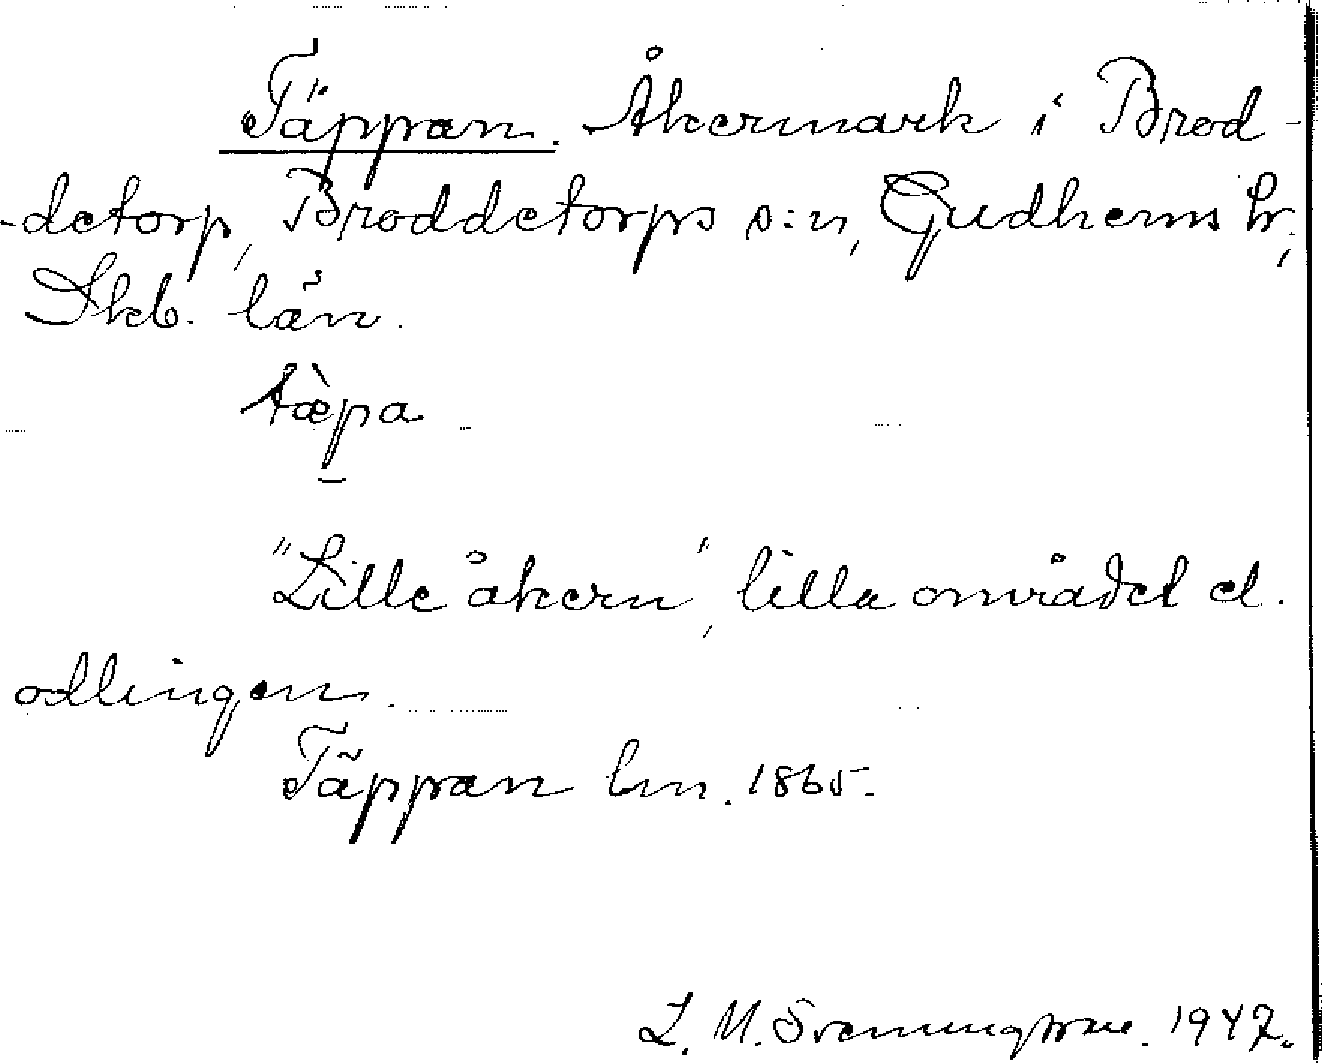 Täppan. Åkermark i Brod-
-detorp, Broddetorps s:n, Gudhems hr,
Skb. län.
tæ̀p̲a
"Lille åkern", lilla området el.
odlingen.
Täppan lm. 1865.
L. M. Svenungsson. 1947.